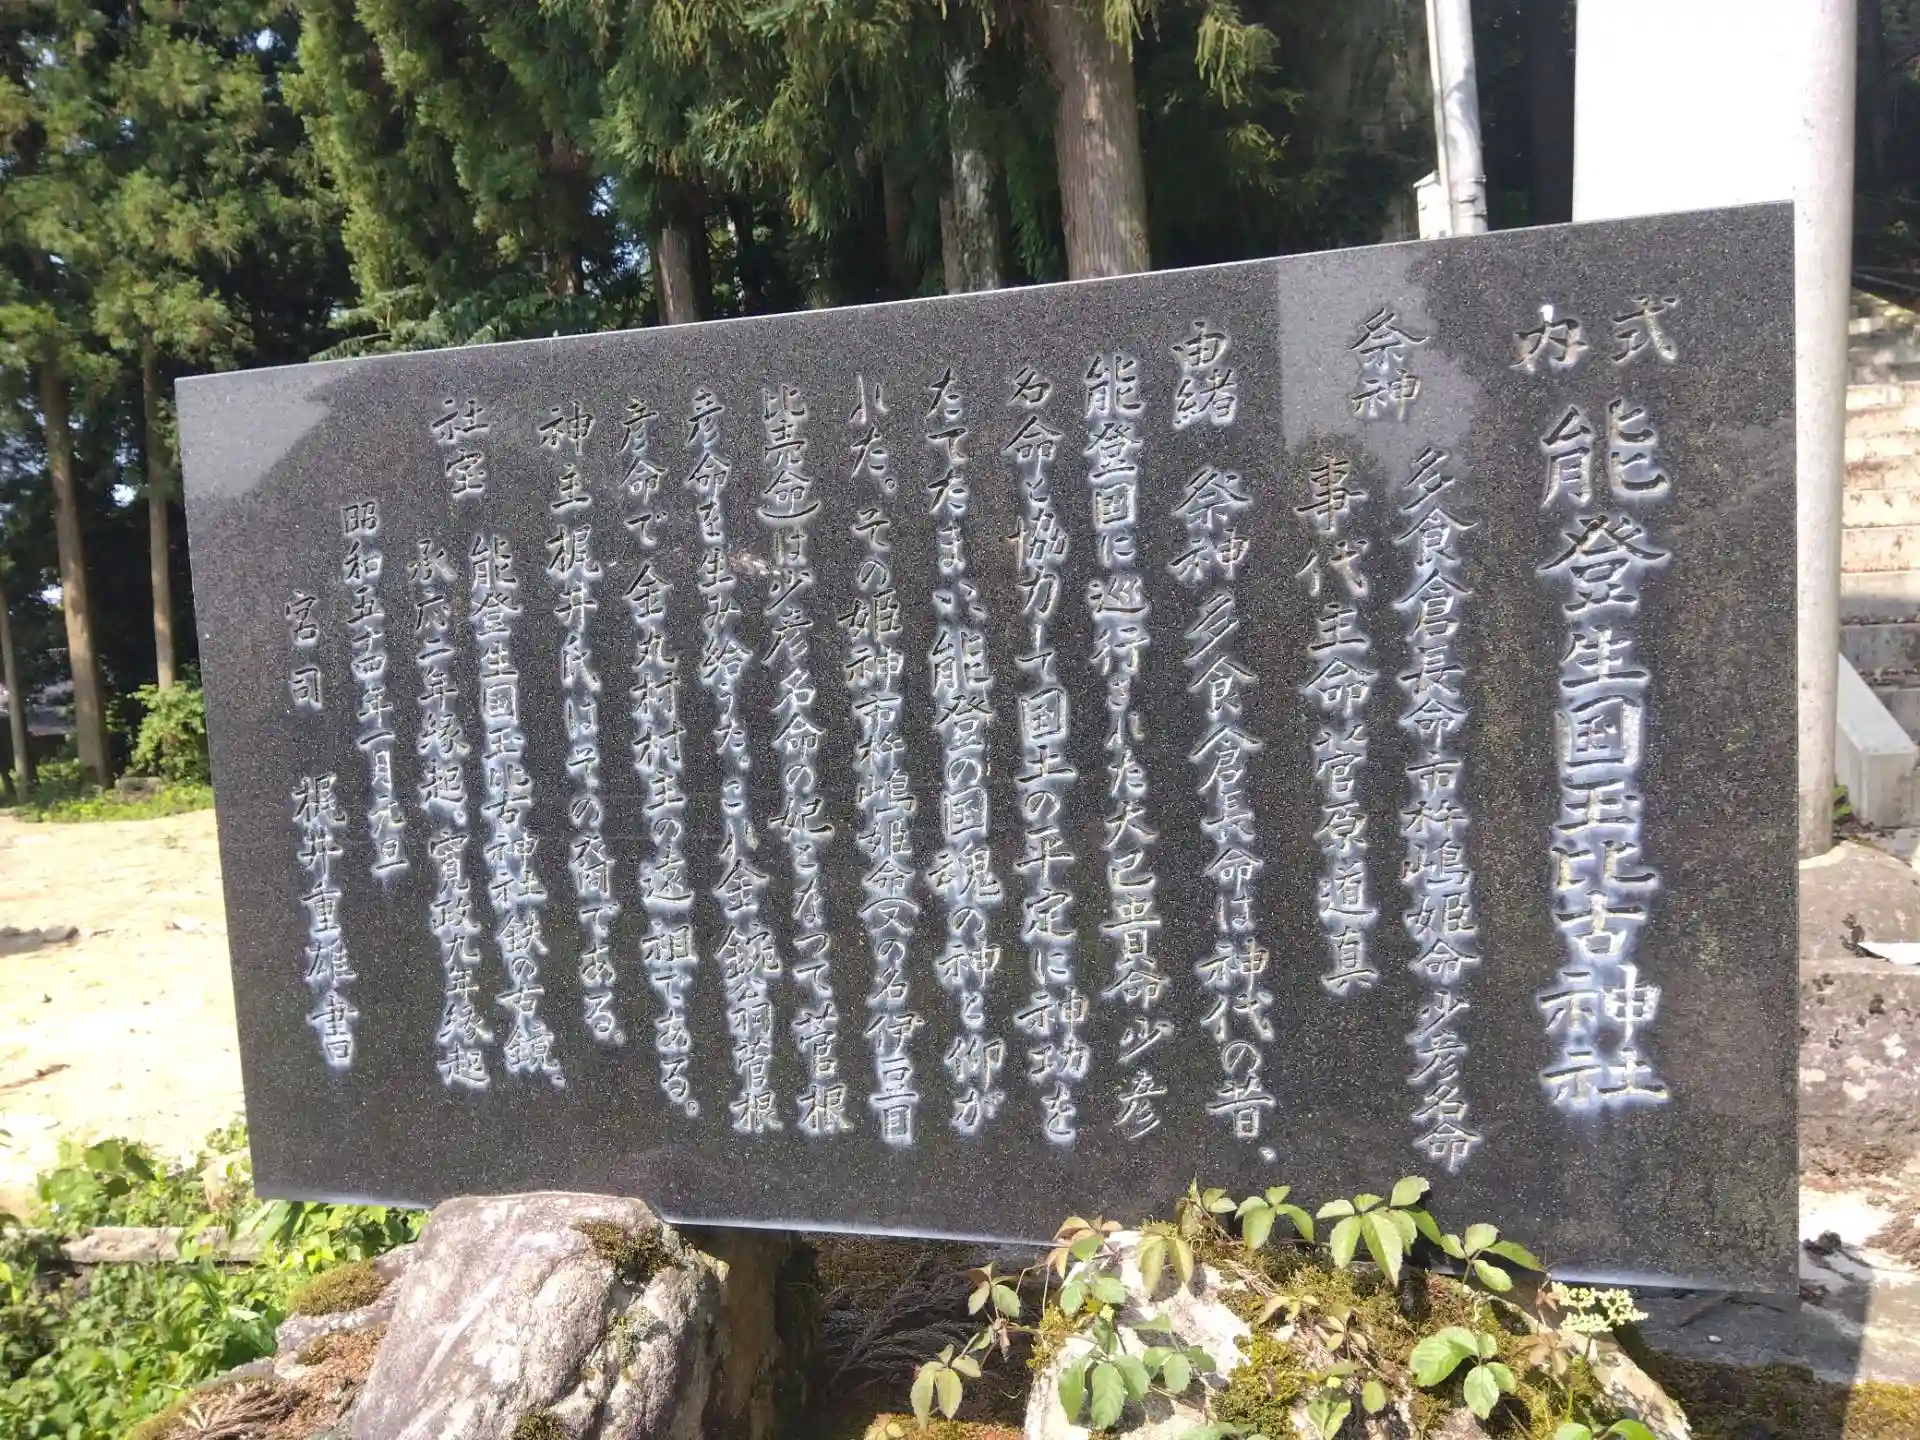 式内 能登生国玉比古神社
祭神 多食倉長命市杵嶋姫命少彦名命
事代主命菅原道真
由緒 祭神多食倉長命は神代の昔、
能登国に巡行された大己貴命少彦
名命と協力して国土の平定に神功を
たてたまい、能登の国魂の神と仰が
れた。その姫神市杵嶋姫命(又の名伊豆目
比売命)は少彦名命の妃となつて菅根
彦命を生み給うた。これ金鋺翁菅根
彦命で金丸村村主の遠祖である。
神主梶井氏はその裔である。
社宝 能登生国玉比古神社鉄の古鏡、
承応二年縁起、寛政九年縁起
昭和五十四年一月元旦
宮司 梶井重雄書